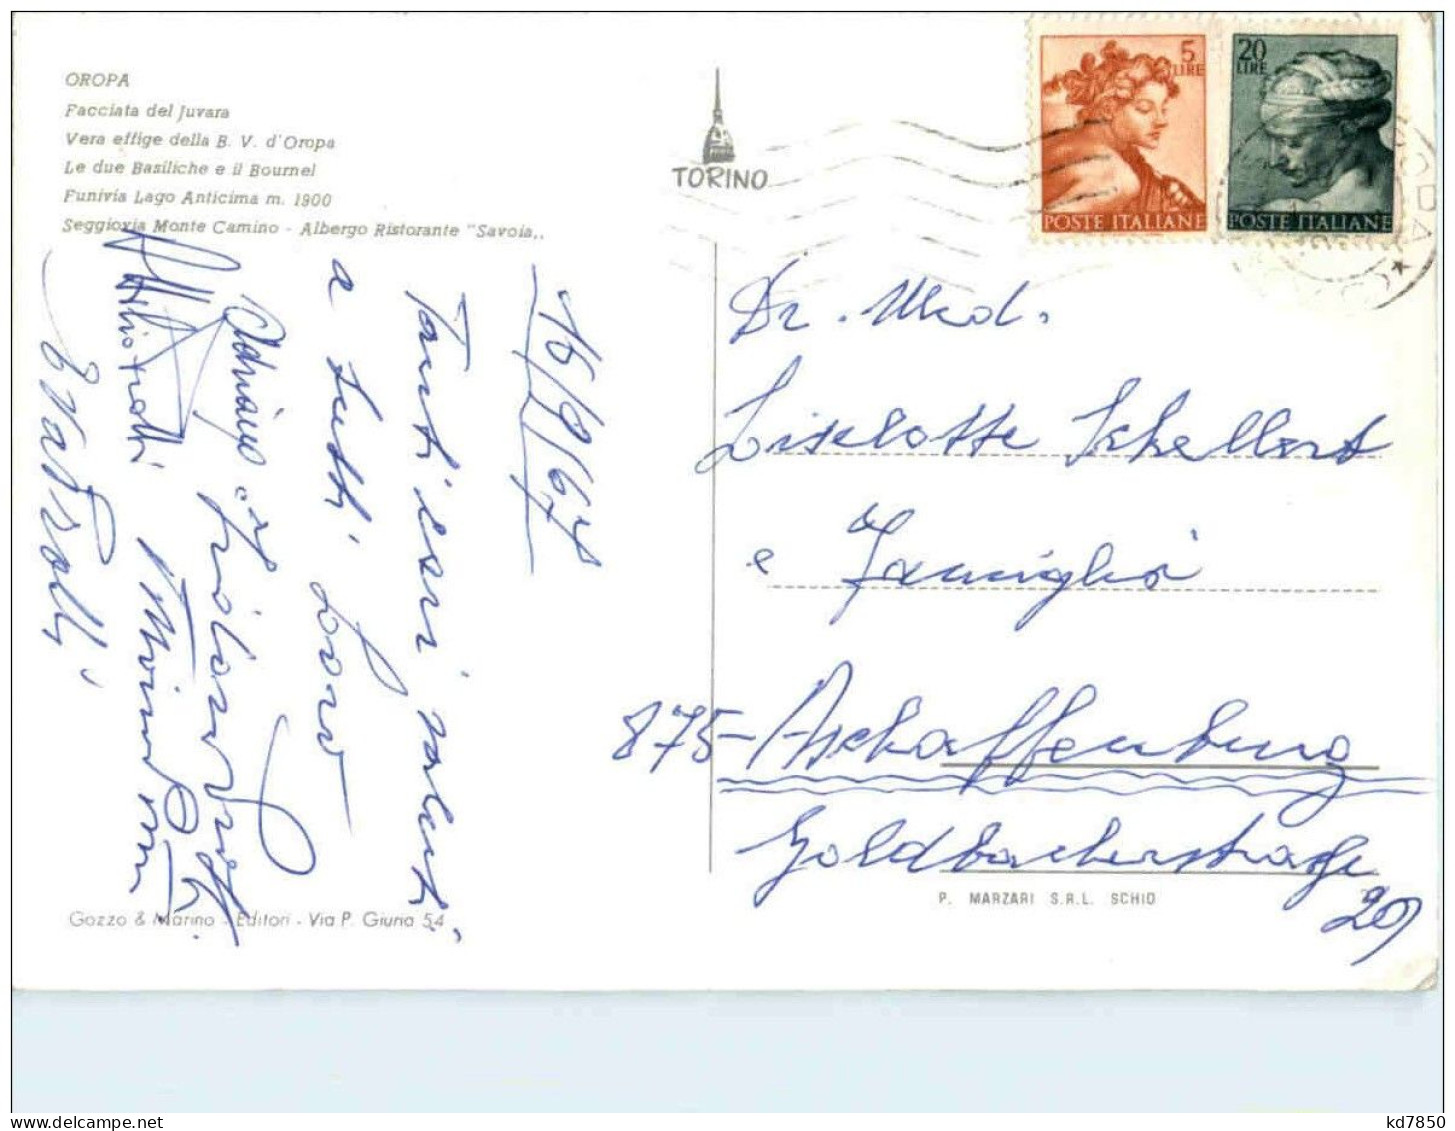 OROPA
Facciata del Juvara
Vera effige della B. V. d'Oropa
Le due Basiliche e il Bournel
Funivia Lago Anticima m. 1900
Seggiovia Monte Camino - Albergo Ristorante "Savoia,,
TORINO
5
LIRE
POSTE ITALIANE
20
LIRE
POSTE ITALIANE
16/9/67
Tanti cari saluti
a tutti Loro
Adriana e
Dr. Med.
Liselotte Schellert
e Famiglia
875-Aschaffenburg
Goldbacherstraße
29
P. MARZARI S.R.L. SCHIO
Gozzo & Marino - Editori - Via P. Giuria 54
kd7850